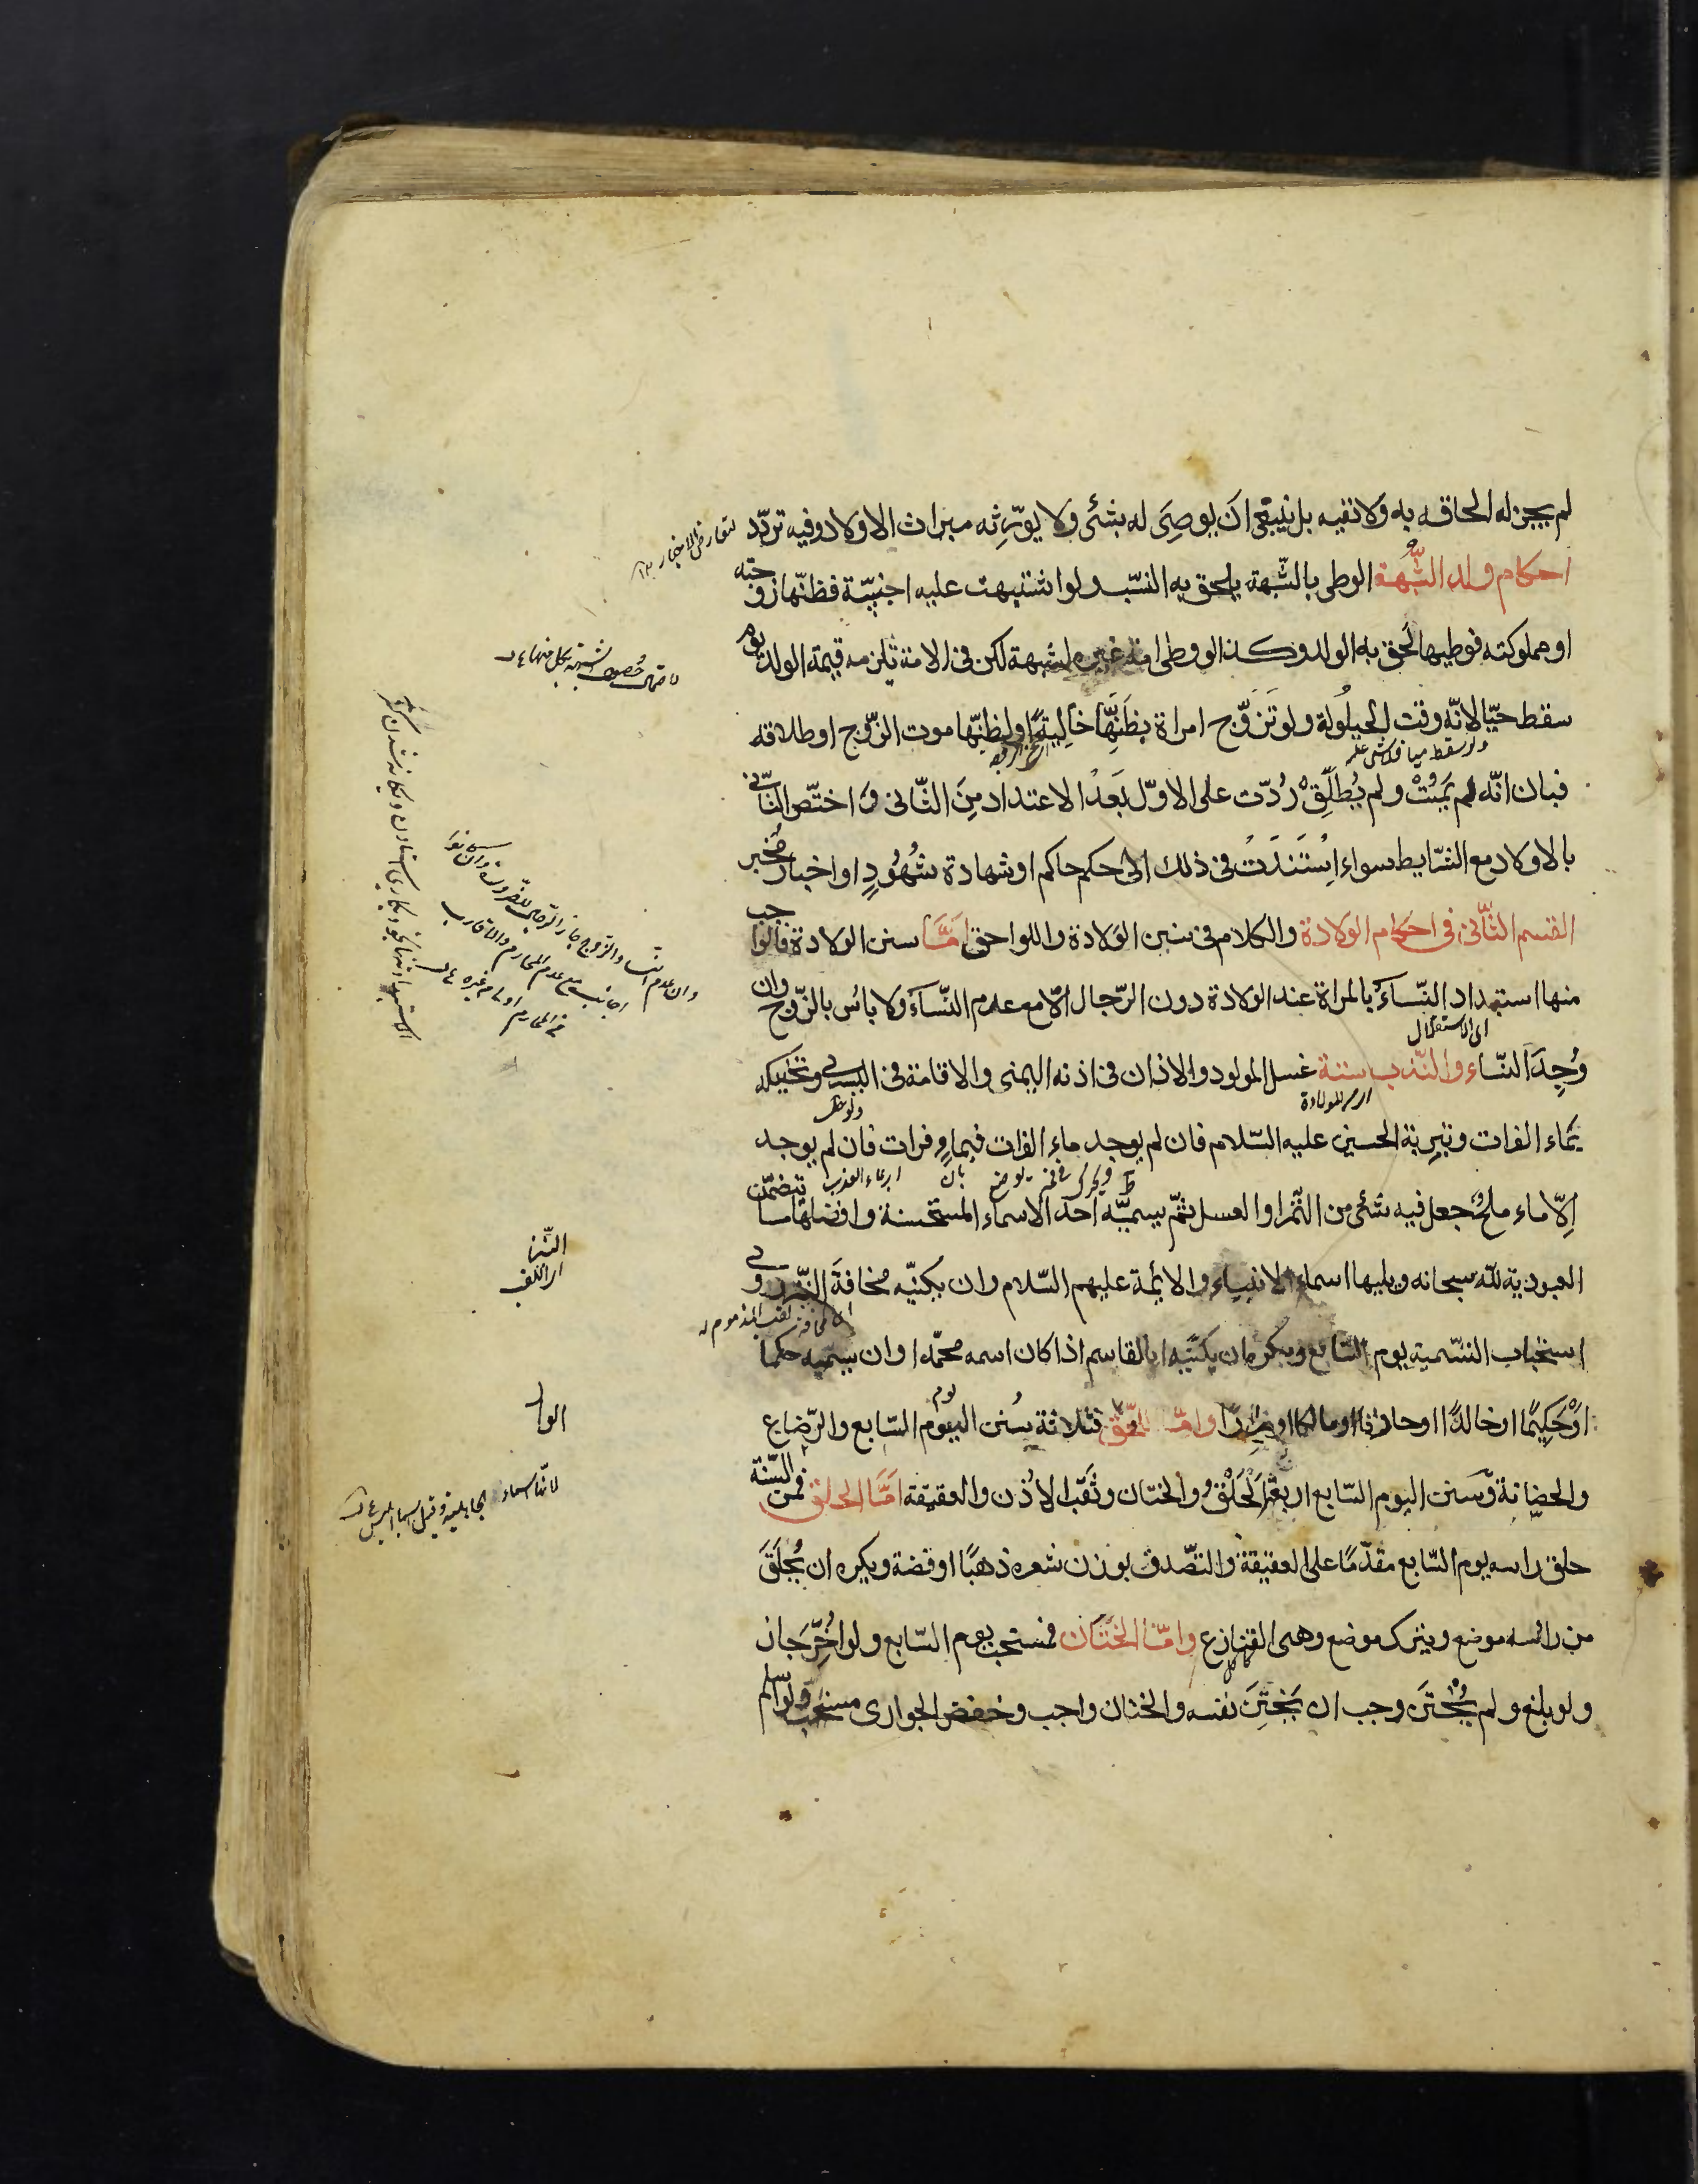 لم يجز له الحاقه به ولا نفيه بل ينبغى ان يوصى له بشئ ولا يورثه ميراث الاولاد وفيه تردد
لتعارض الاخبار
احكام ولد الشبهة الوطى بالشبهة يلحق به النسب ولو اشتبهت عليه اجنبية فظنها زوجته
او مملوكته فوطيها لحق به الولد وكذا لو وطى امة غيره لشبهة لكن فى الامة تلزمه قيمة الولد يوم
سقط حيا لانه وقت الحيلولة ولو تزوج امراة بظنها خالية او لظنها موت الزوج او طلاقه
ولو سقط ميتا فلا شى عليه
فبان انه لم يمت ولم يطلق ردت على الاول بعد الاعتداد من الثانى و اختص الثانى
بالاولاد مع الشرايط سواء استندت فى ذلك الى حكم حاكم او شهادة شهود او اخبار مخبر
القسم الثانى فى احكام الولادة والكلام فى سنن الولادة واللواحق اما سنن الولادة فالواجب
منها استبداد النساء بالمراة عند الولادة دون الرجال الا مع عدم النساء ولا باس بالزوج وان
وجد النساء والندب ستة غسل المولود والاذان فى اذنه اليمنى والاقامة فى اليسرى وتحنيكه
بماء الفرات وتربة الحسين عليه السلام فان لم يوجد ماء الفرات فبماء فرات فان لم يوجد
الا ماء ملح جعل فيه شئ من التمر او العسل ثم يسميه احد الاسماء المستحسنة وافضلها ما يتضمن
العبودية لله سبحانه ويليها اسماء الانبياء والائمة عليهم السلام وان يكنيه مخافة النبز وروى
استحباب التسمية يوم السابع ويكره ان يكنيه ابا القاسم اذا كان اسمه محمدا وان يسميه حكما
او حكيما او خالدا او حارثا او مالكا او ضرارا واما اللواحق فثلاثة سنن اليوم السابع والرضاع
والحضانة وسنن اليوم السابع اربعة الحلق والختان وثقب الاذن والعقيقة اما الحلق فمن السنة
حلق راسه يوم السابع مقدما على العقيقة والتصدق بوزن شعره ذهبا او فضة ويكره ان يحلق
من راسه موضع ويترك موضع وهى القنازع واما الختان فمستحب يوم السابع ولو اخر جاز
ولو بلغ ولم يختتن وجب ان يختتن نفسه والختان واجب وخفض الجوارى مستحب ولو اسلم